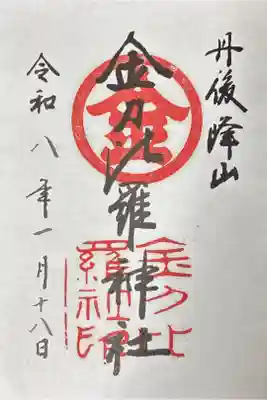 丹後峰山
金刀比羅神社
令和八年一月十八日
金刀比
羅神社印